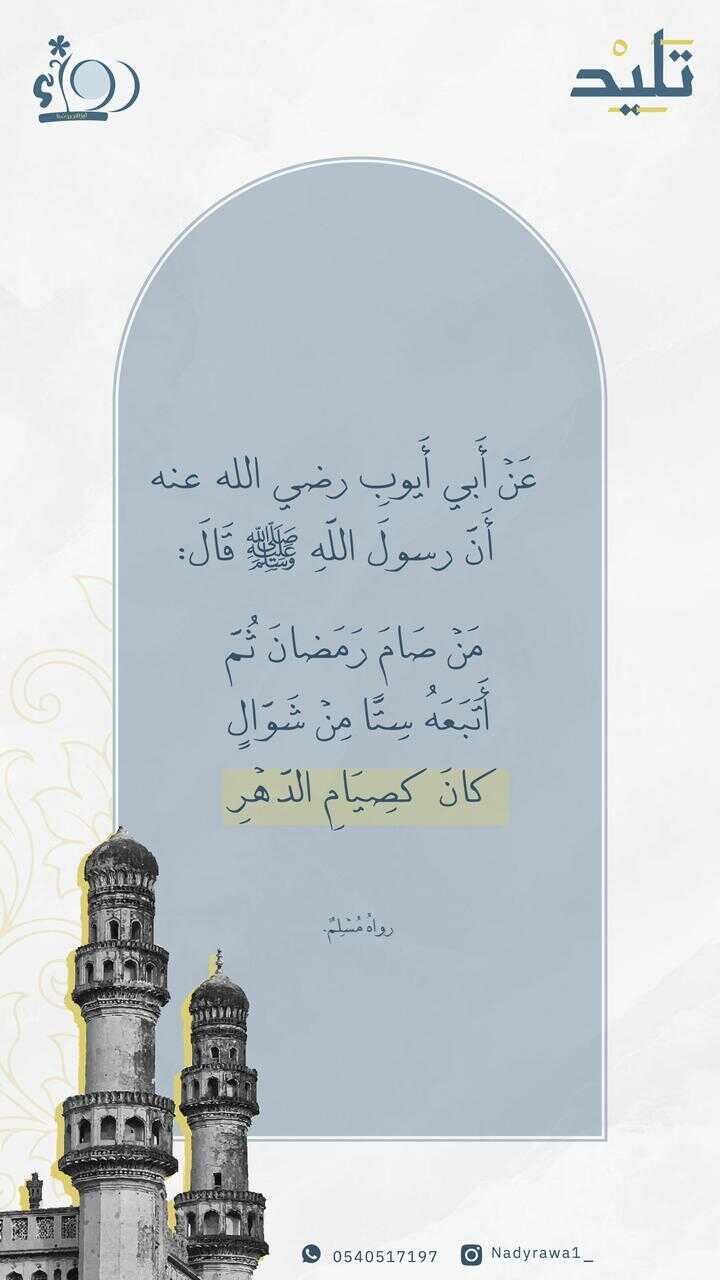 تليد
رواء
عَنْ أَبي أَيوبِ رضي الله عنه
أَنَّ رسولَ اللَّهِ ﷺ قَالَ:
مَنْ صَامَ رَمَضانَ ثُمَّ
أَتبَعَهُ سِتًّا مِنْ شَوَّالٍ
كانَ كصِيَامِ الدَّهْرِ
رواهُ مُسْلِمٌ.
0540517197 Nadyrawa1_